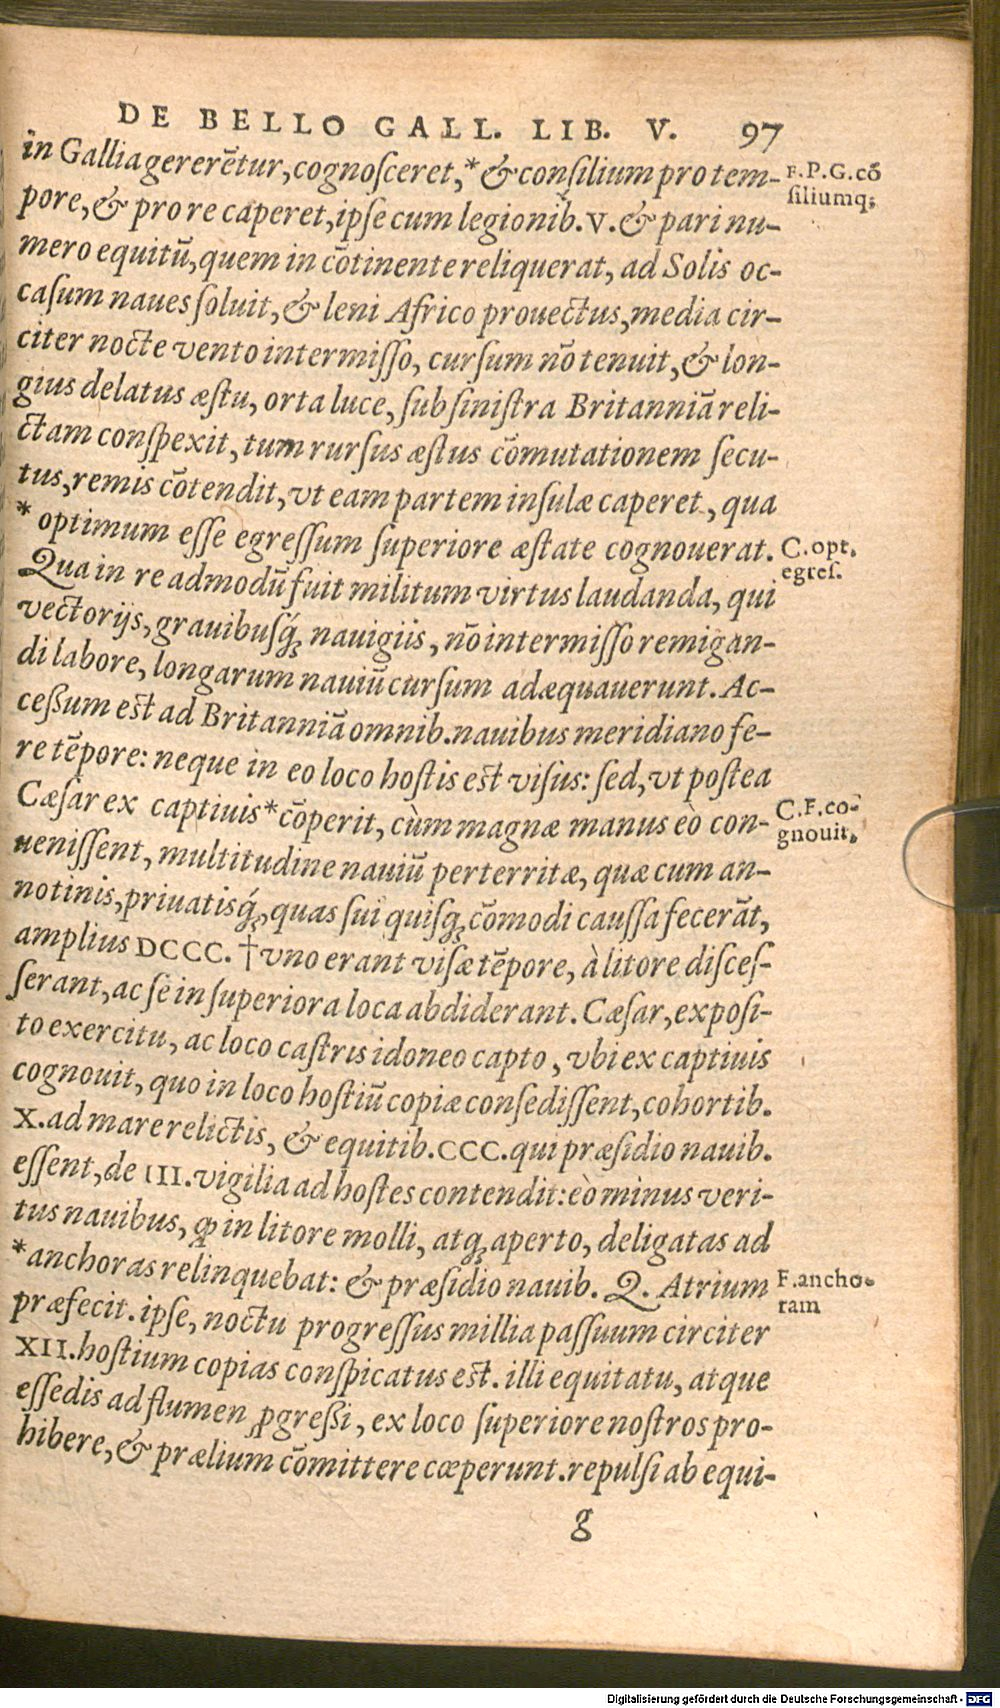 DE BELLO GALL. LIB. V. 97
in Gallia gererētur, cognosceret,* & consilium pro tem-
pore, & pro re caperet, ipse cum legionib. V. & pari nu-
mero equitū, quem in cōtinente reliquerat, ad Solis oc-
casum naues soluit, & leni Africo prouectus, media cir-
citer nocte vento intermisso, cursum nō tenuit, & lon-
gius delatus æstu, orta luce, sub sinistra Britanniā reli-
ctam conspexit, tum rursus æstus cōmutationem secu-
tus, remis cōtendit, vt eam partem insulæ caperet, qua
* optimum esse egressum superiore æstate cognouerat.
Qua in re admodū fuit militum virtus laudanda, qui
vectorijs, grauibusq́; nauigiis, nō intermisso remigan-
di labore, longarum nauiū cursum adæquauerunt. Ac-
ceßum est ad Britanniā omnib. nauibus meridiano fe-
re tēpore: neque in eo loco hostis est visus: sed, vt postea
Cæsar ex captiuis * cōperit, cùm magnæ manus eò con-
uenissent, multitudine nauiū perterritæ, quæ cum an-
notinis, priuatisq́;, quas sui quisq; cōmodi caussa fecerāt,
amplius DCCC. † vno erant visæ tēpore, à litore disces-
serant, ac sé in superiora loca abdiderant. Cæsar, exposi-
to exercitu, ac loco castris idoneo capto, vbi ex captiuis
cognouit, quo in loco hostiū copiæ consedissent, cohortib.
X. ad mare relictis, & equitib. CCC. qui præsidio nauib.
essent, de III. vigilia ad hostes contendit: eò minus veri-
tus nauibus, ꝙ in litore molli, atq; aperto, deligatas ad
* anchoras relinquebat: & præsidio nauib. Q. Atrium
præfecit. ipse, noctu progressus millia passuum circiter
XII. hostium copias conspicatus est. illi equitatu, atque
essedis ad flumen ꝓgreßi, ex loco superiore nostros pro-
hibere, & prælium cōmittere cœperunt. repulsi ab equi-
g
F.P.G.cō
siliumq;
C.opt.
egres.
C.F.co-
gnouit.
F.ancho-
ram
Digitalisierung gefördert durch die Deutsche Forschungsgemeinschaft - DFG